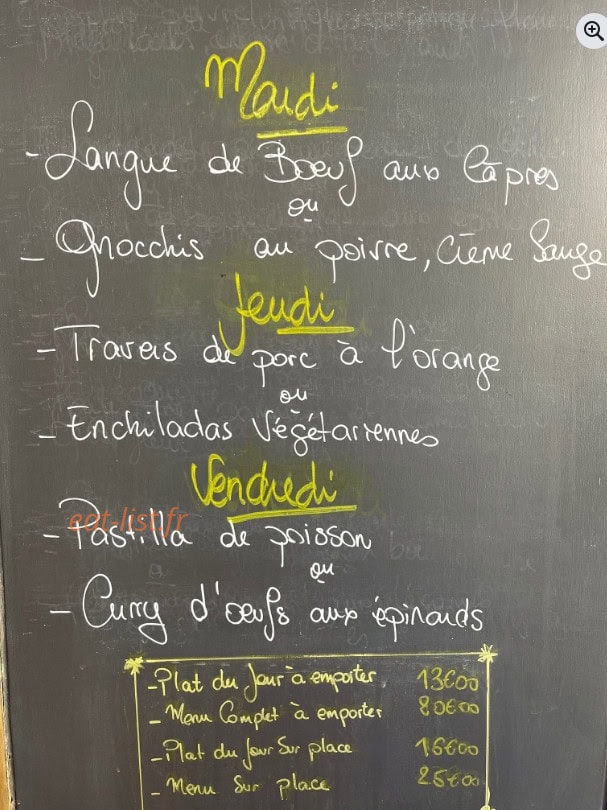 Mardi
- Langue de Boeuf aux Câpres
ou
- Gnocchis au poivre, Crème Sauge
Jeudi
- Travers de porc à l'orange
ou
- Enchiladas Végétariennes
Vendredi
eat-list.fr
- Pastilla de poisson
ou
- Curry d'œufs aux épinards
- Plat du Jour à emporter 13€00
- Menu Complet à emporter 20€00
- Plat du Jour Sur place 16€00
- Menu Sur place 25€00